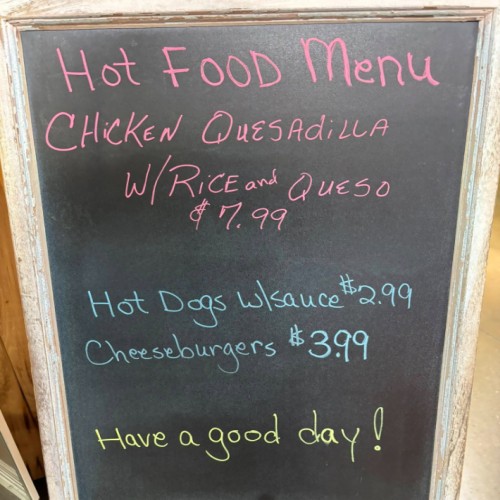 Hot FOOD Menu
CHiCKEN QUESADiLLA
W/RiCE and QUESO
$7.99
Hot Dogs w/sauce $2.99
Cheeseburgers $3.99
Have a good day!